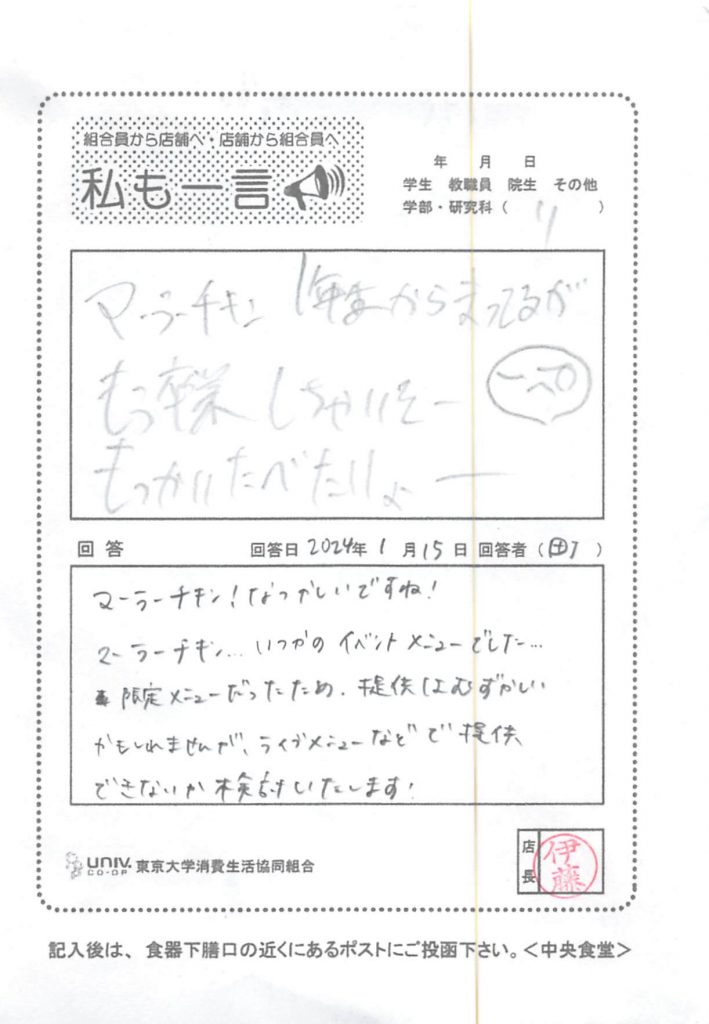 組合員から店舗へ・店舗から組合員へ
私も一言
年 月 日
学生 教職員 院生 その他
学部・研究科（ ）
マーラーチキン 1年生からまってるが
もう卒業しちゃいそー
もっかいたべたいよー
回答 回答日 2024年 1月15日 回答者（田丁）
マーラーチキン！なつかしいですね！
マーラーチキン...いつかのイベントメニューでした...
限定メニューだったため、提供はむずかしい
かもしれませんが、ライブメニューなどで提供
できないか検討いたします！
UNIV. CO-OP 東京大学消費生活協同組合
店長 伊藤
記入後は、食器下膳口の近くにあるポストにご投函下さい。＜中央食堂＞